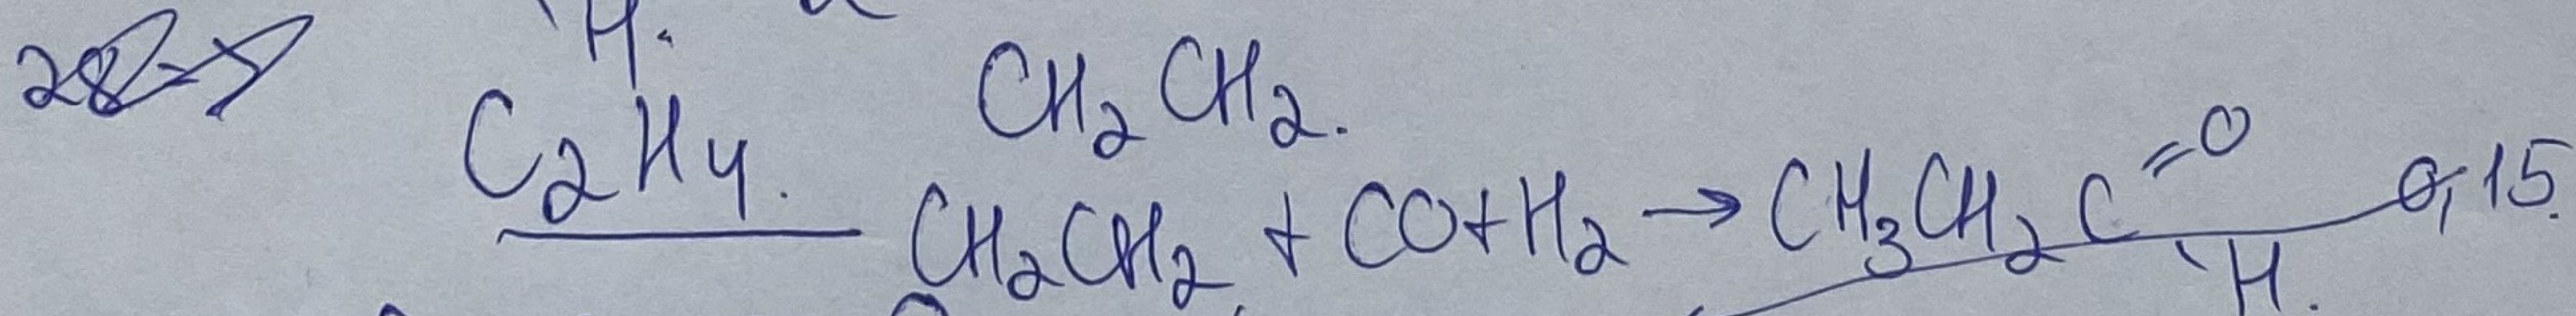 H.
CH2CH2.
C2H4.
CH2CH2 + CO+H2 → CH3CH2C=O H. 0,15.